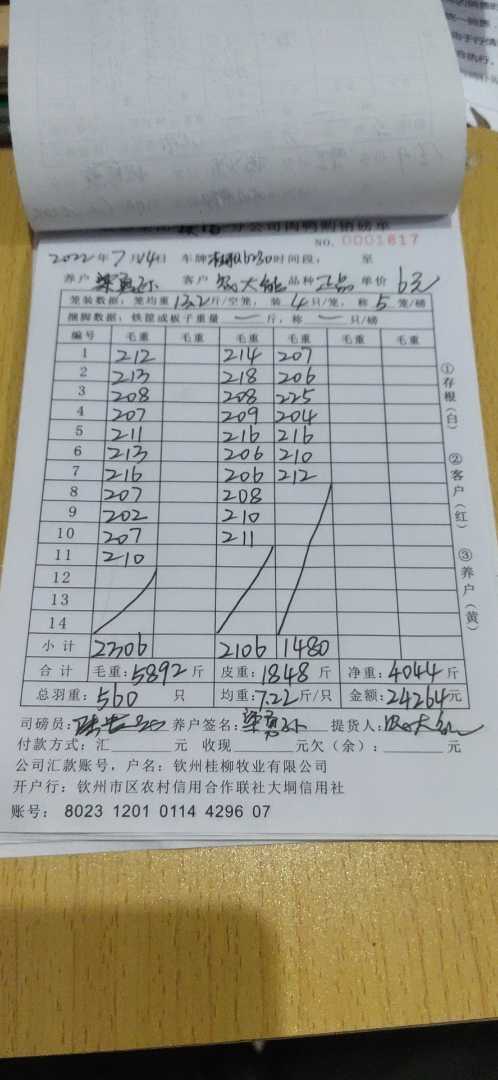 分公司肉鸭购销磅单
NO. 0001617
2022年7月14日 车牌 时间段： 至
养户 客户 大能 品种 正品 单价 6元
笼装数据：笼均重13.2斤/空笼，装4只/笼，称5笼/磅
捆脚数据：铁筐或板子重量 — 斤，称 — 只/磅
编号 毛重 毛重 毛重 毛重 毛重 毛重
1 212 214 207
2 213 218 206
3 208 208 225
4 207 209 204
5 211 216 216
6 213 206 210
7 216 206 212
8 207 208
9 202 210
10 207 211
11 210
12
13
14
小计 2306 2106 1480
合计 毛重：5892斤 皮重：1848斤 净重：4044斤
总羽重：560只 均重：7.22斤/只 金额：24264元
司磅员： 养户签名： 提货人：
付款方式：汇 元 收现 元欠（余）： 元
公司汇款账号，户名：钦州桂柳牧业有限公司
开户行：钦州市区农村信用合作联社大垌信用社
账号： 8023 1201 0114 4296 07
①存根（白）
②客户（红）
③养户（黄）